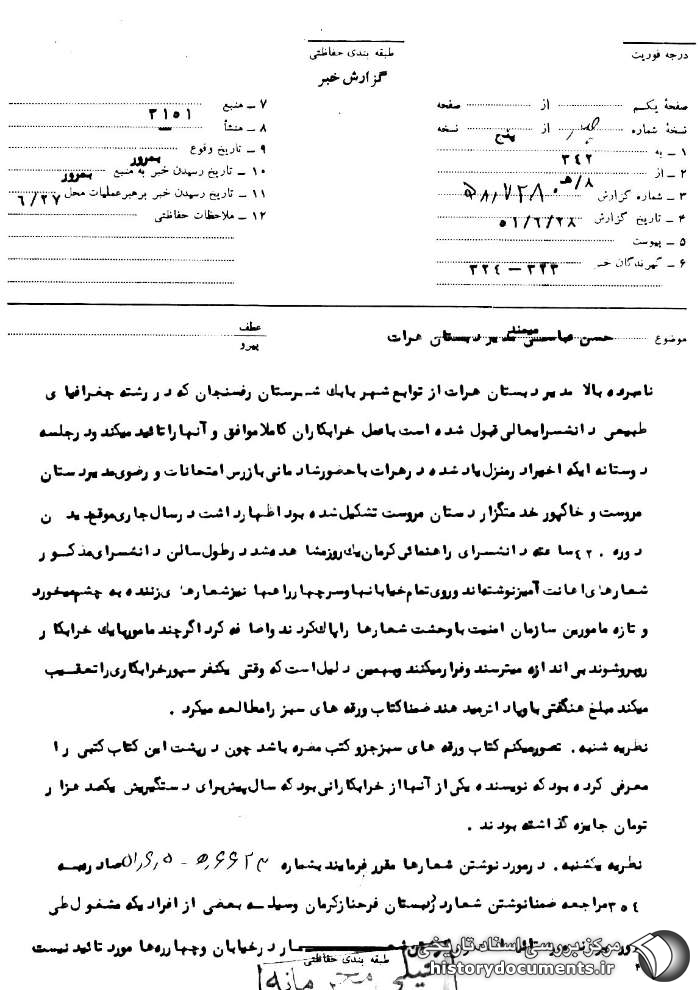 درجه فوریت
طبقه بندی حفاظتی
گزارش خبر
صفحهٔ یکم از صفحه
نسخهٔ شماره از پنج نسخه
۱ ــ به ۳۴۲
۲ ــ از ۸/هـ
۳ ــ شماره گزارش
۴ ــ تاریخ گزارش ۵۱/۶/۲۸
۵ ــ پیوست
۶ ــ گیرندگان خبر ۳۳۳ – ۳۲۴
۷ ــ منبع ۳۱۵۱
۸ ــ منشأ
۹ ــ تاریخ وقوع بمرور
۱۰ ــ تاریخ رسیدن خبر به منبع بمرور
۱۱ ــ تاریخ رسیدن خبر برهبرعملیات محل ۶/۲۷
۱۲ ــ ملاحظات حفاظتی
موضوع حسن مدیر دبستان هرات
عطف
پیرو
نامبرده بالا مدیر دبستان هرات از توابع شهر بابك شهرستان رفسنجان که در رشته جغرافیا ی
طبیعی دانشسرایعالی قبول شده است باعمل خرابکاران کاملا موافق و آنها را تائید میکند ود رجلسه
دوستانه ایکه اخیرا د رمنزل یاد شده د رهرات با حضورشاد مانی بازرس امتحانات و رضوی مدیردبستان
مروست و خاکپور خدمتگزار دبستان مروست تشکیل شده بود اظهارداشت درسال جاری موقع دید ن
دوره ۴۲۰ ساعته دانشسرای راهنمائی کرمان یك روز مشاهده شد د رطول سالن دانشسرای مذکور
شعارهای اهانت آمیز نوشته اند وروی تمام خیابانها وسرچهارراهها نیزشعارها ی زننده به چشم میخورد
و تازه مامورین سازمان امنیت با وحشت شعارها را پاك کردند واضا فه کرد اگرچند مامور با یك خرابکا ر
روبروشوند بی اندازه میترسند وفرارمیکنند وبهمین دلیل است که وقتی یکنفر سپورخرابکاری را تعقیب
میکند مبلغ هنگفتی باو پاداش مید هند ضمنا کتاب ورقه های سبز رامطالعه میکرد .
نظریه شنبه . تصورمیکنم کتاب ورقه های سبزجزو کتب مضره باشد چون د رپشت این کتاب کتبی را
معرفی کرده بود که نویسنده یکی از آنها از خرابکارانی بود که سال پیش برای دستگیریش یکصد هزا ر
تومان جایزه گذاشته بودند .
نظریه یکشنبه . درمورد نوشتن شعارها مقرر فرمایند بشماره صادره به
۳۵۴ مراجعه ضمنا نوشتن شعار د ردبستان فرحناز کرمان وسیله بعضی از افراد یکه مشغول طی
در خیابان وچهارره ها مورد تائید نیست
طبقه بندی حفاظتی
خیلی محرمانه
مرکز بررسی اسناد تاریخی
historydocuments.ir